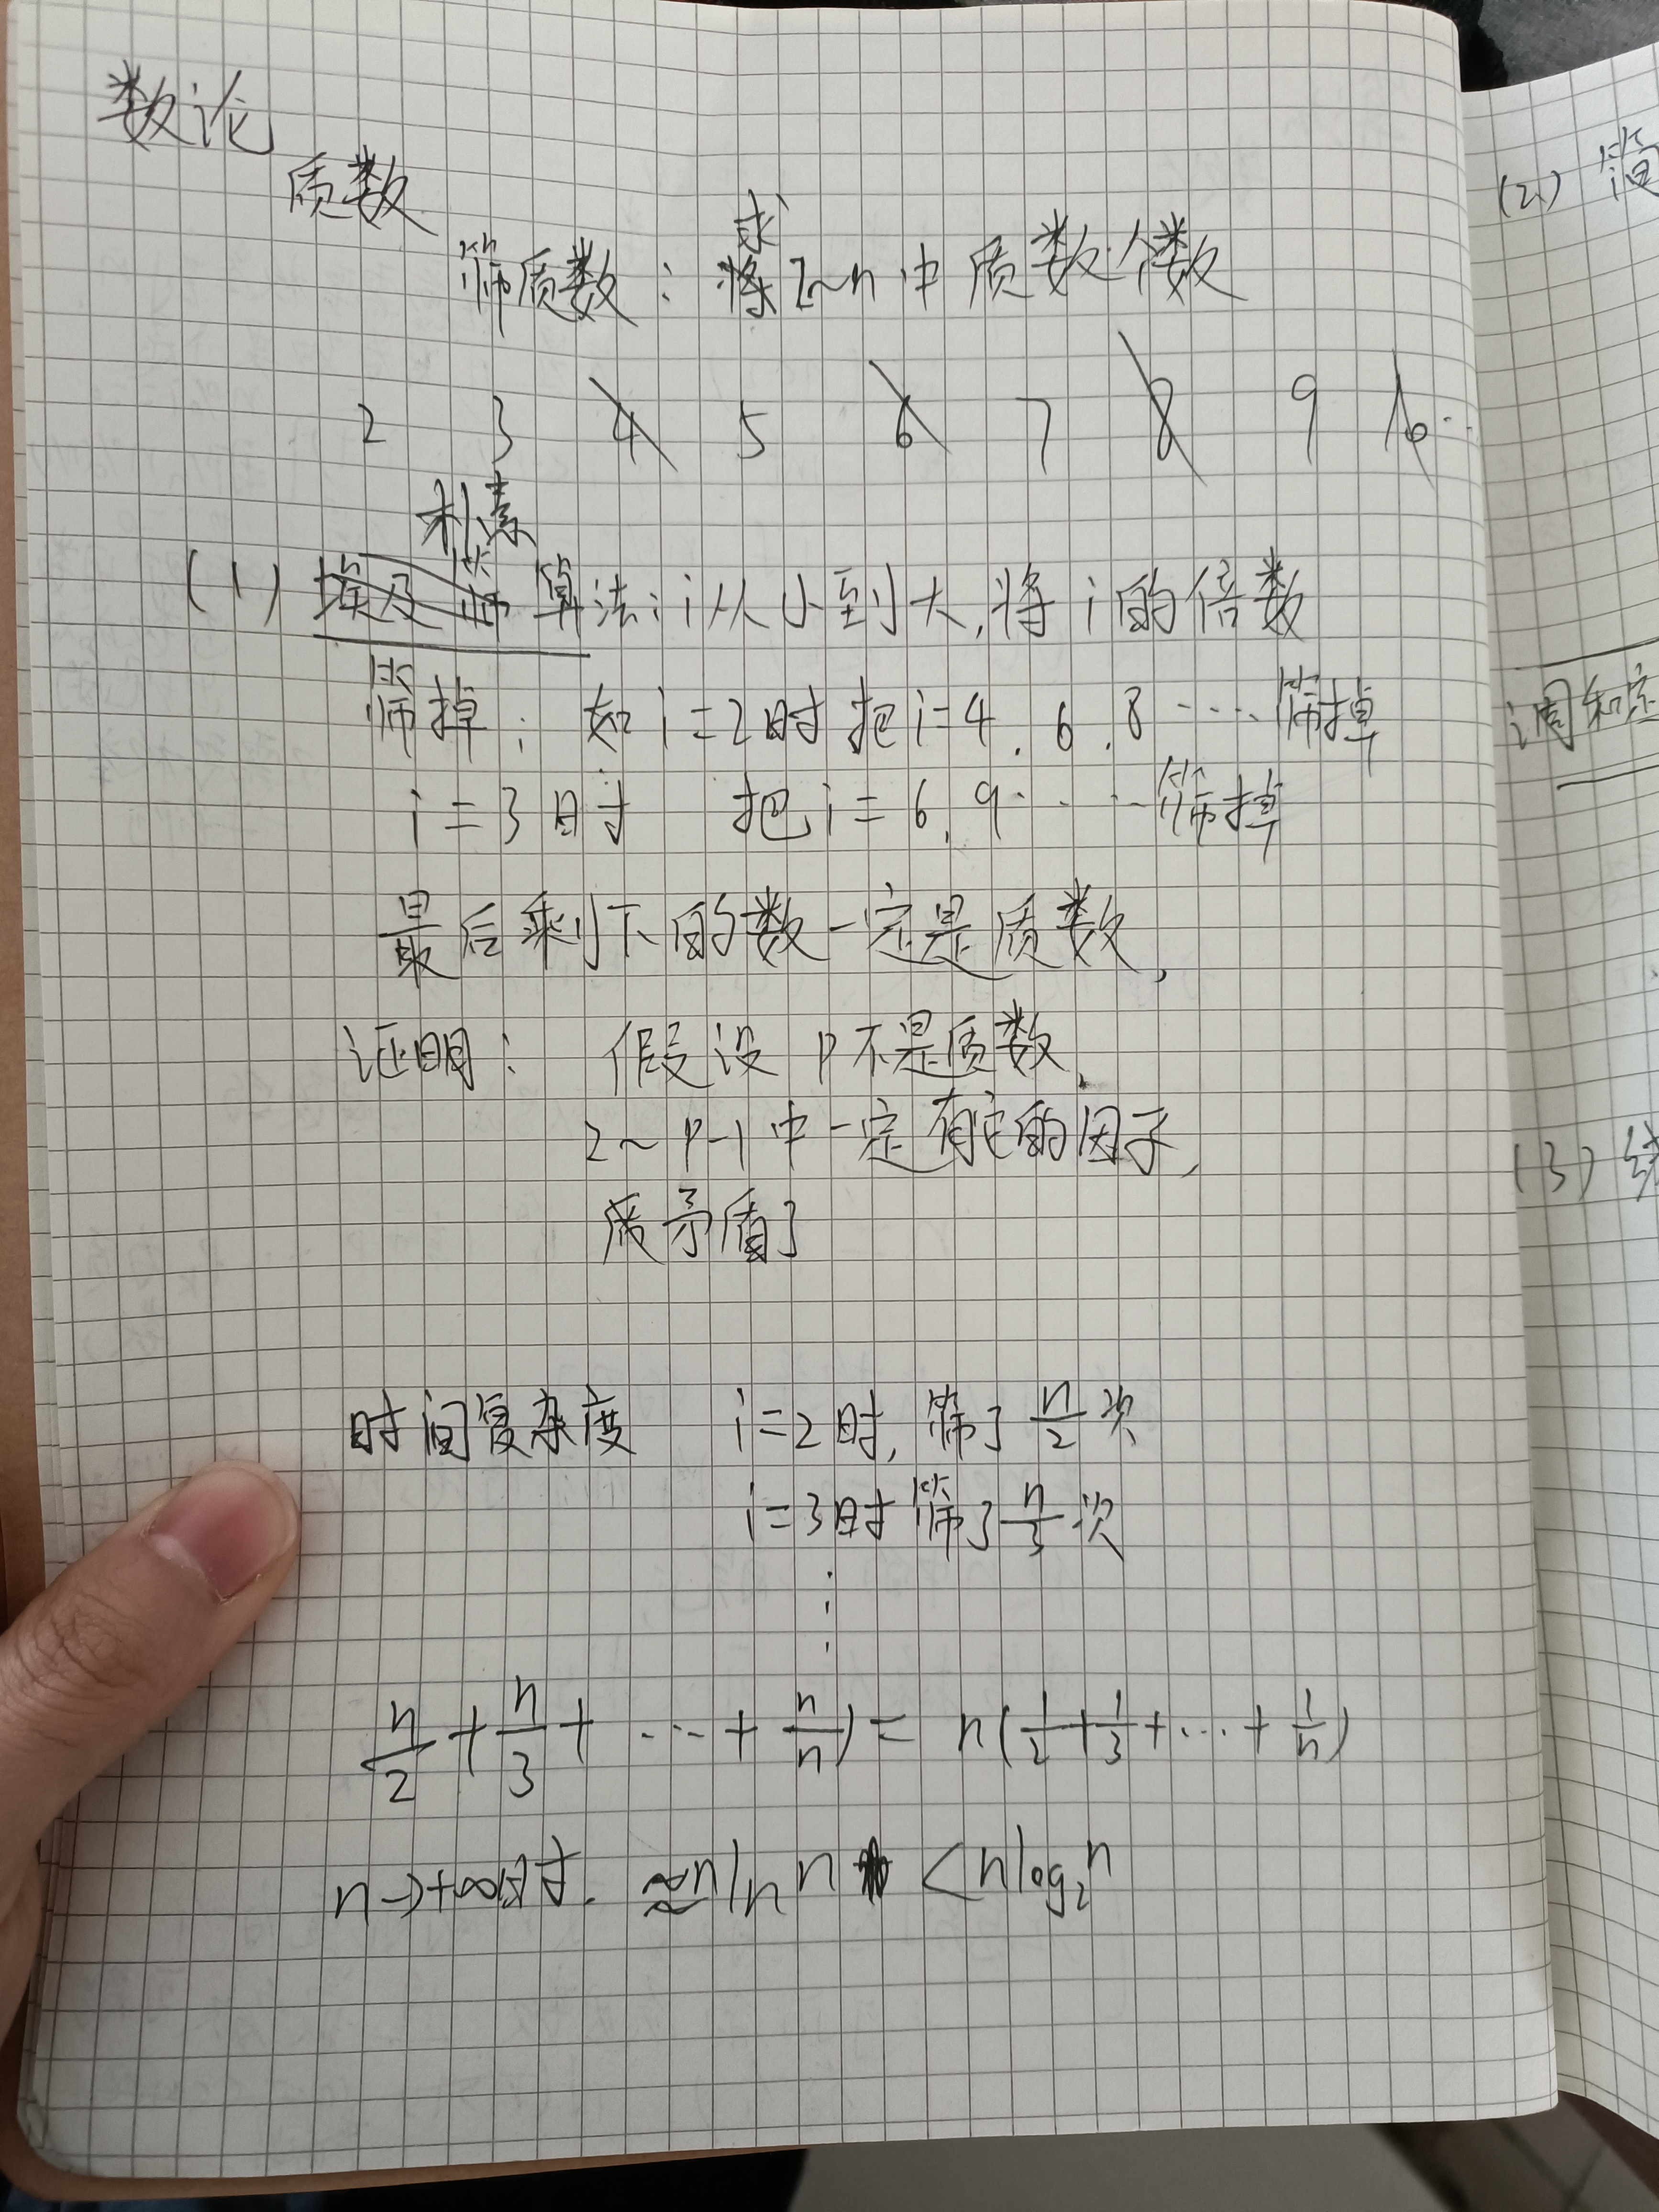 数论
质数
求
筛质数：将2~n中质数个数
2 3 4 5 6 7 8 9 10
朴素
(1) 埃及筛算法：i从小到大，将i的倍数
筛掉；如i=2时把i=4，6，8……筛掉
i=3时 把i=6，9……筛掉
最后剩下的数一定是质数，
证明： 假设P不是质数，
2~P-1中一定有它的因子，
矛盾了
时间复杂度 i=2时，筛了n/2次
i=3时筛了n/3次
⋮
n/2+n/3+……+n/n)=n(1/2+1/3+…+1/n)
n→+∞时. ≈nlnn <nlog₂n
(2) 简
调和
(3) 线